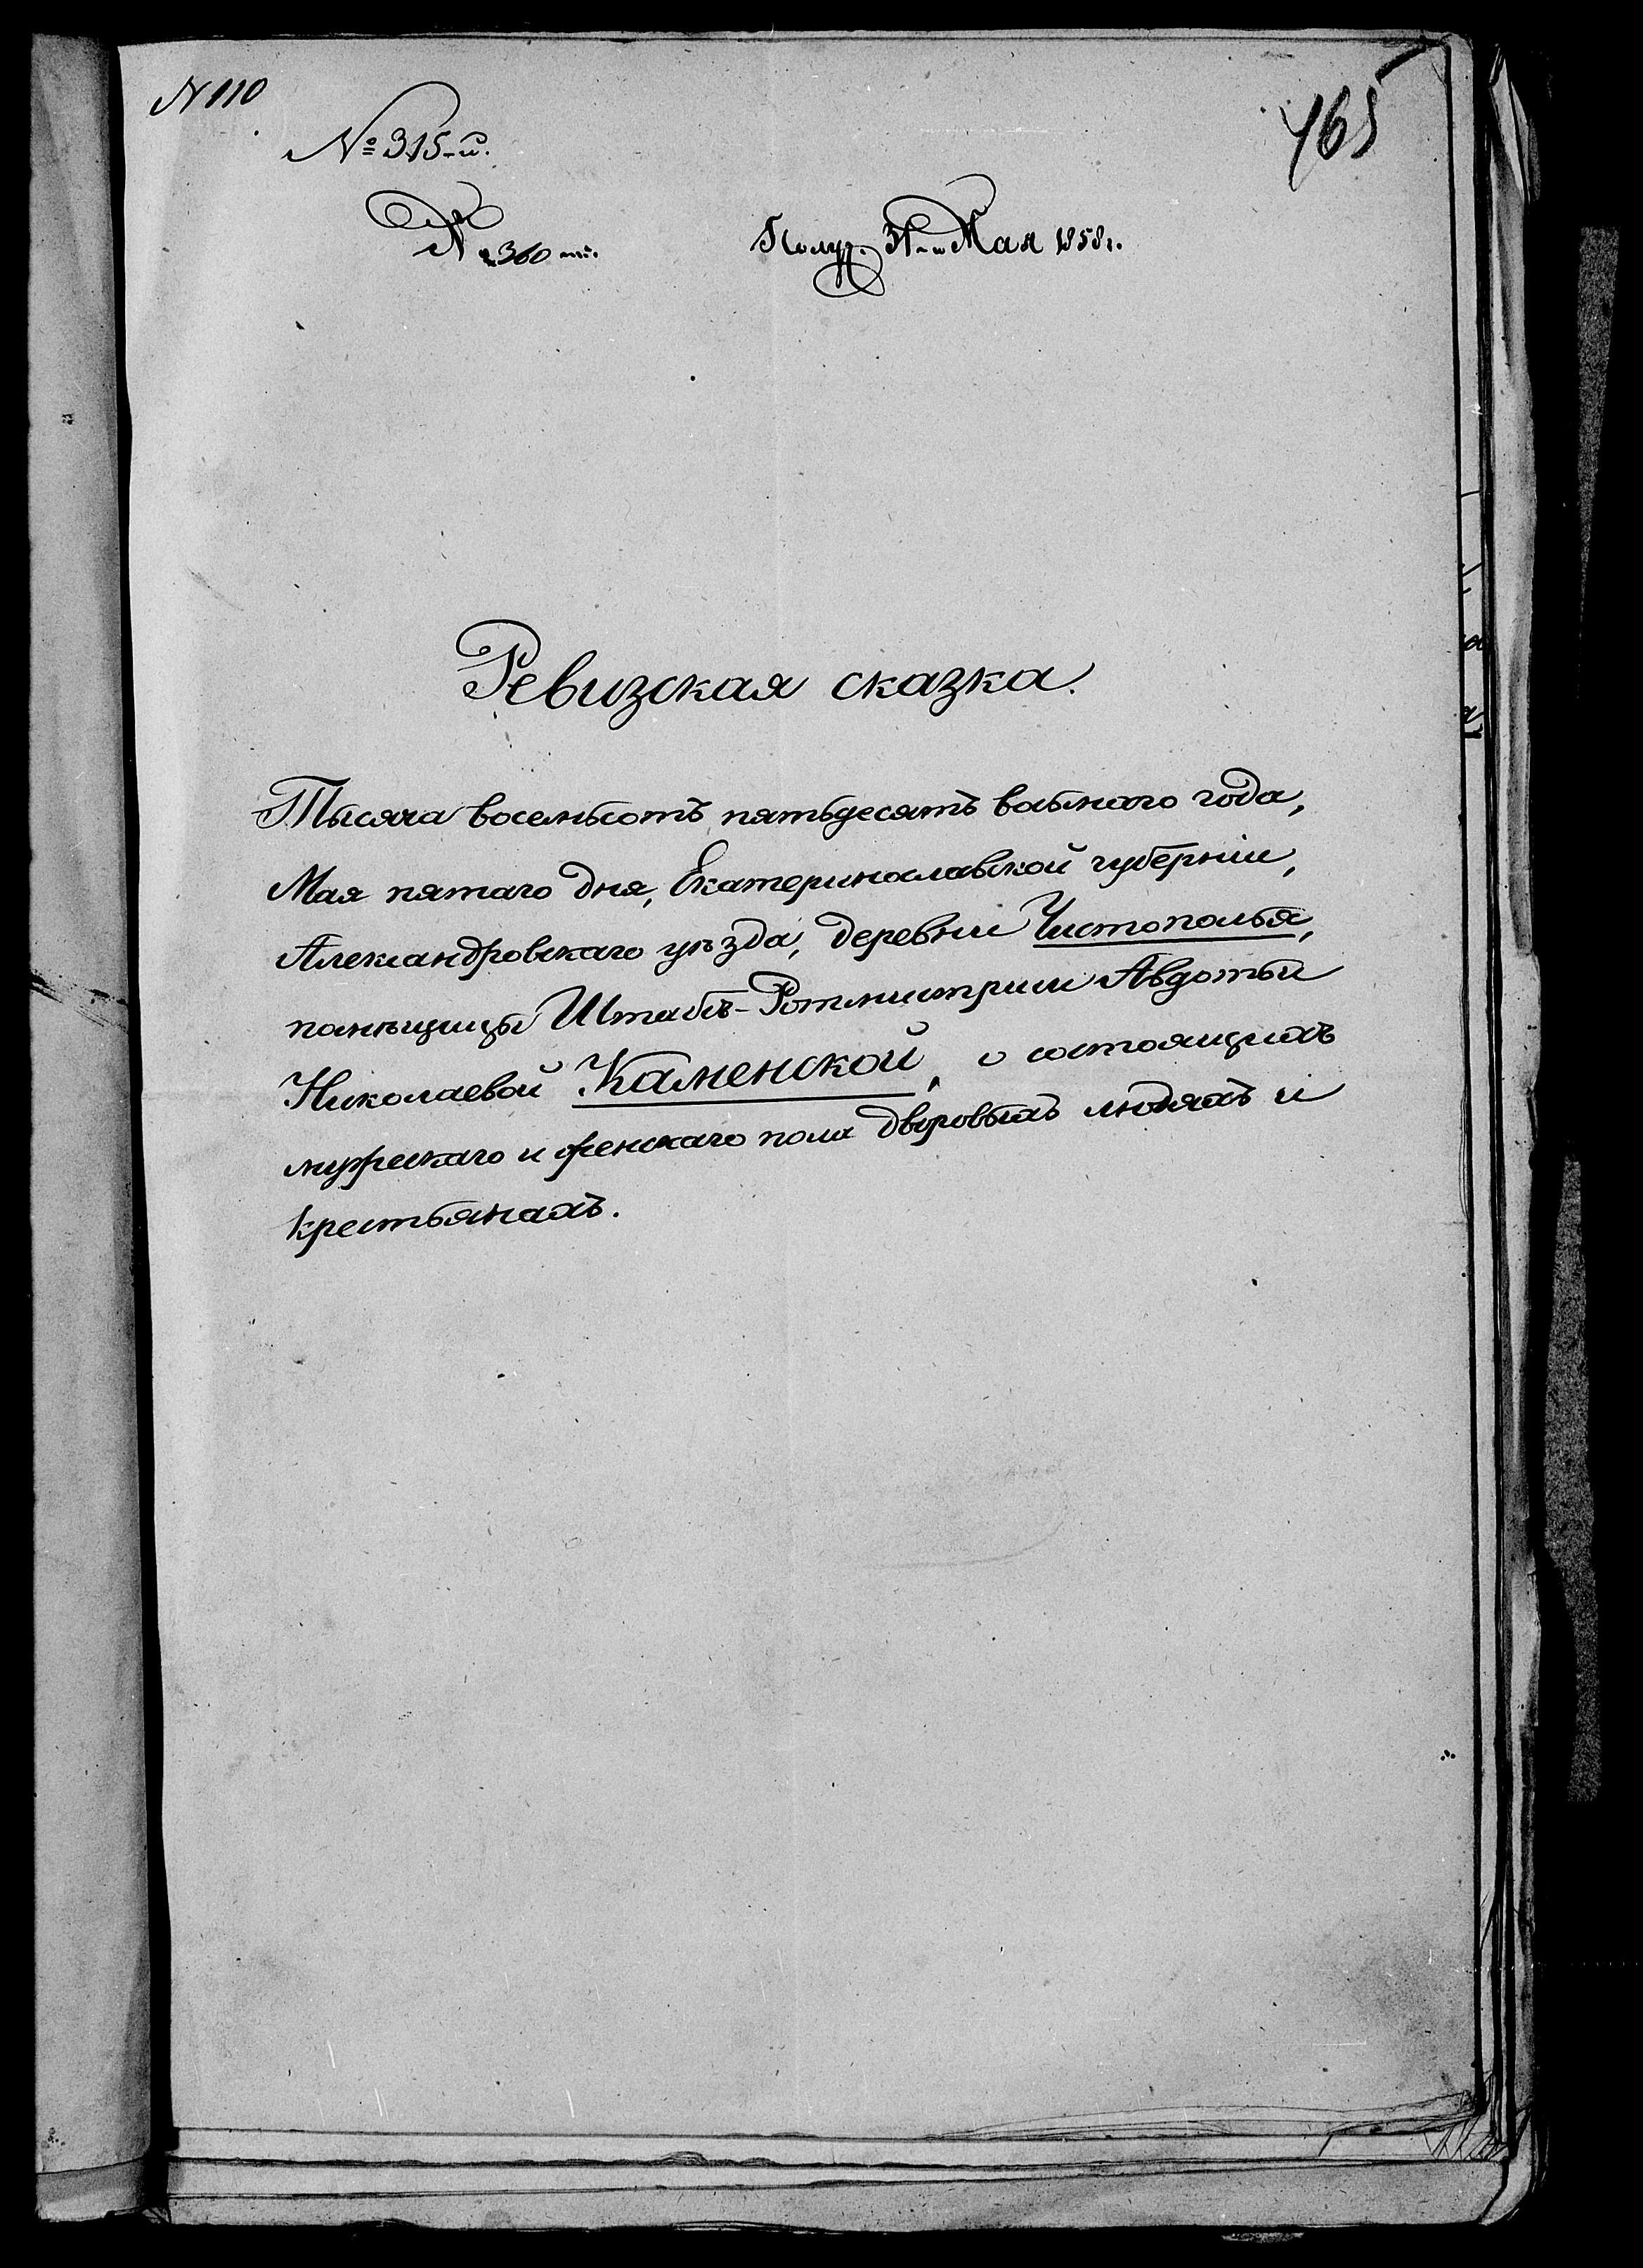 N 110
465
№ 315-й.
№ 360
Получ. 31-го Мая 1858 г.
Ревизская сказка.
Тысяча восемьсотъ пятьдесятъ восьмаго года,
Мая пятаго дня, Екатеринославской губерніи,
Александровскаго уѣзда, деревни Чистополья,
помѣщицы Штабъ-Ротмистрши Авдотьи
Николаевой Каменской, о состоящихъ
мужескаго и женскаго пола дворовыхъ людяхъ и
крестьянахъ.